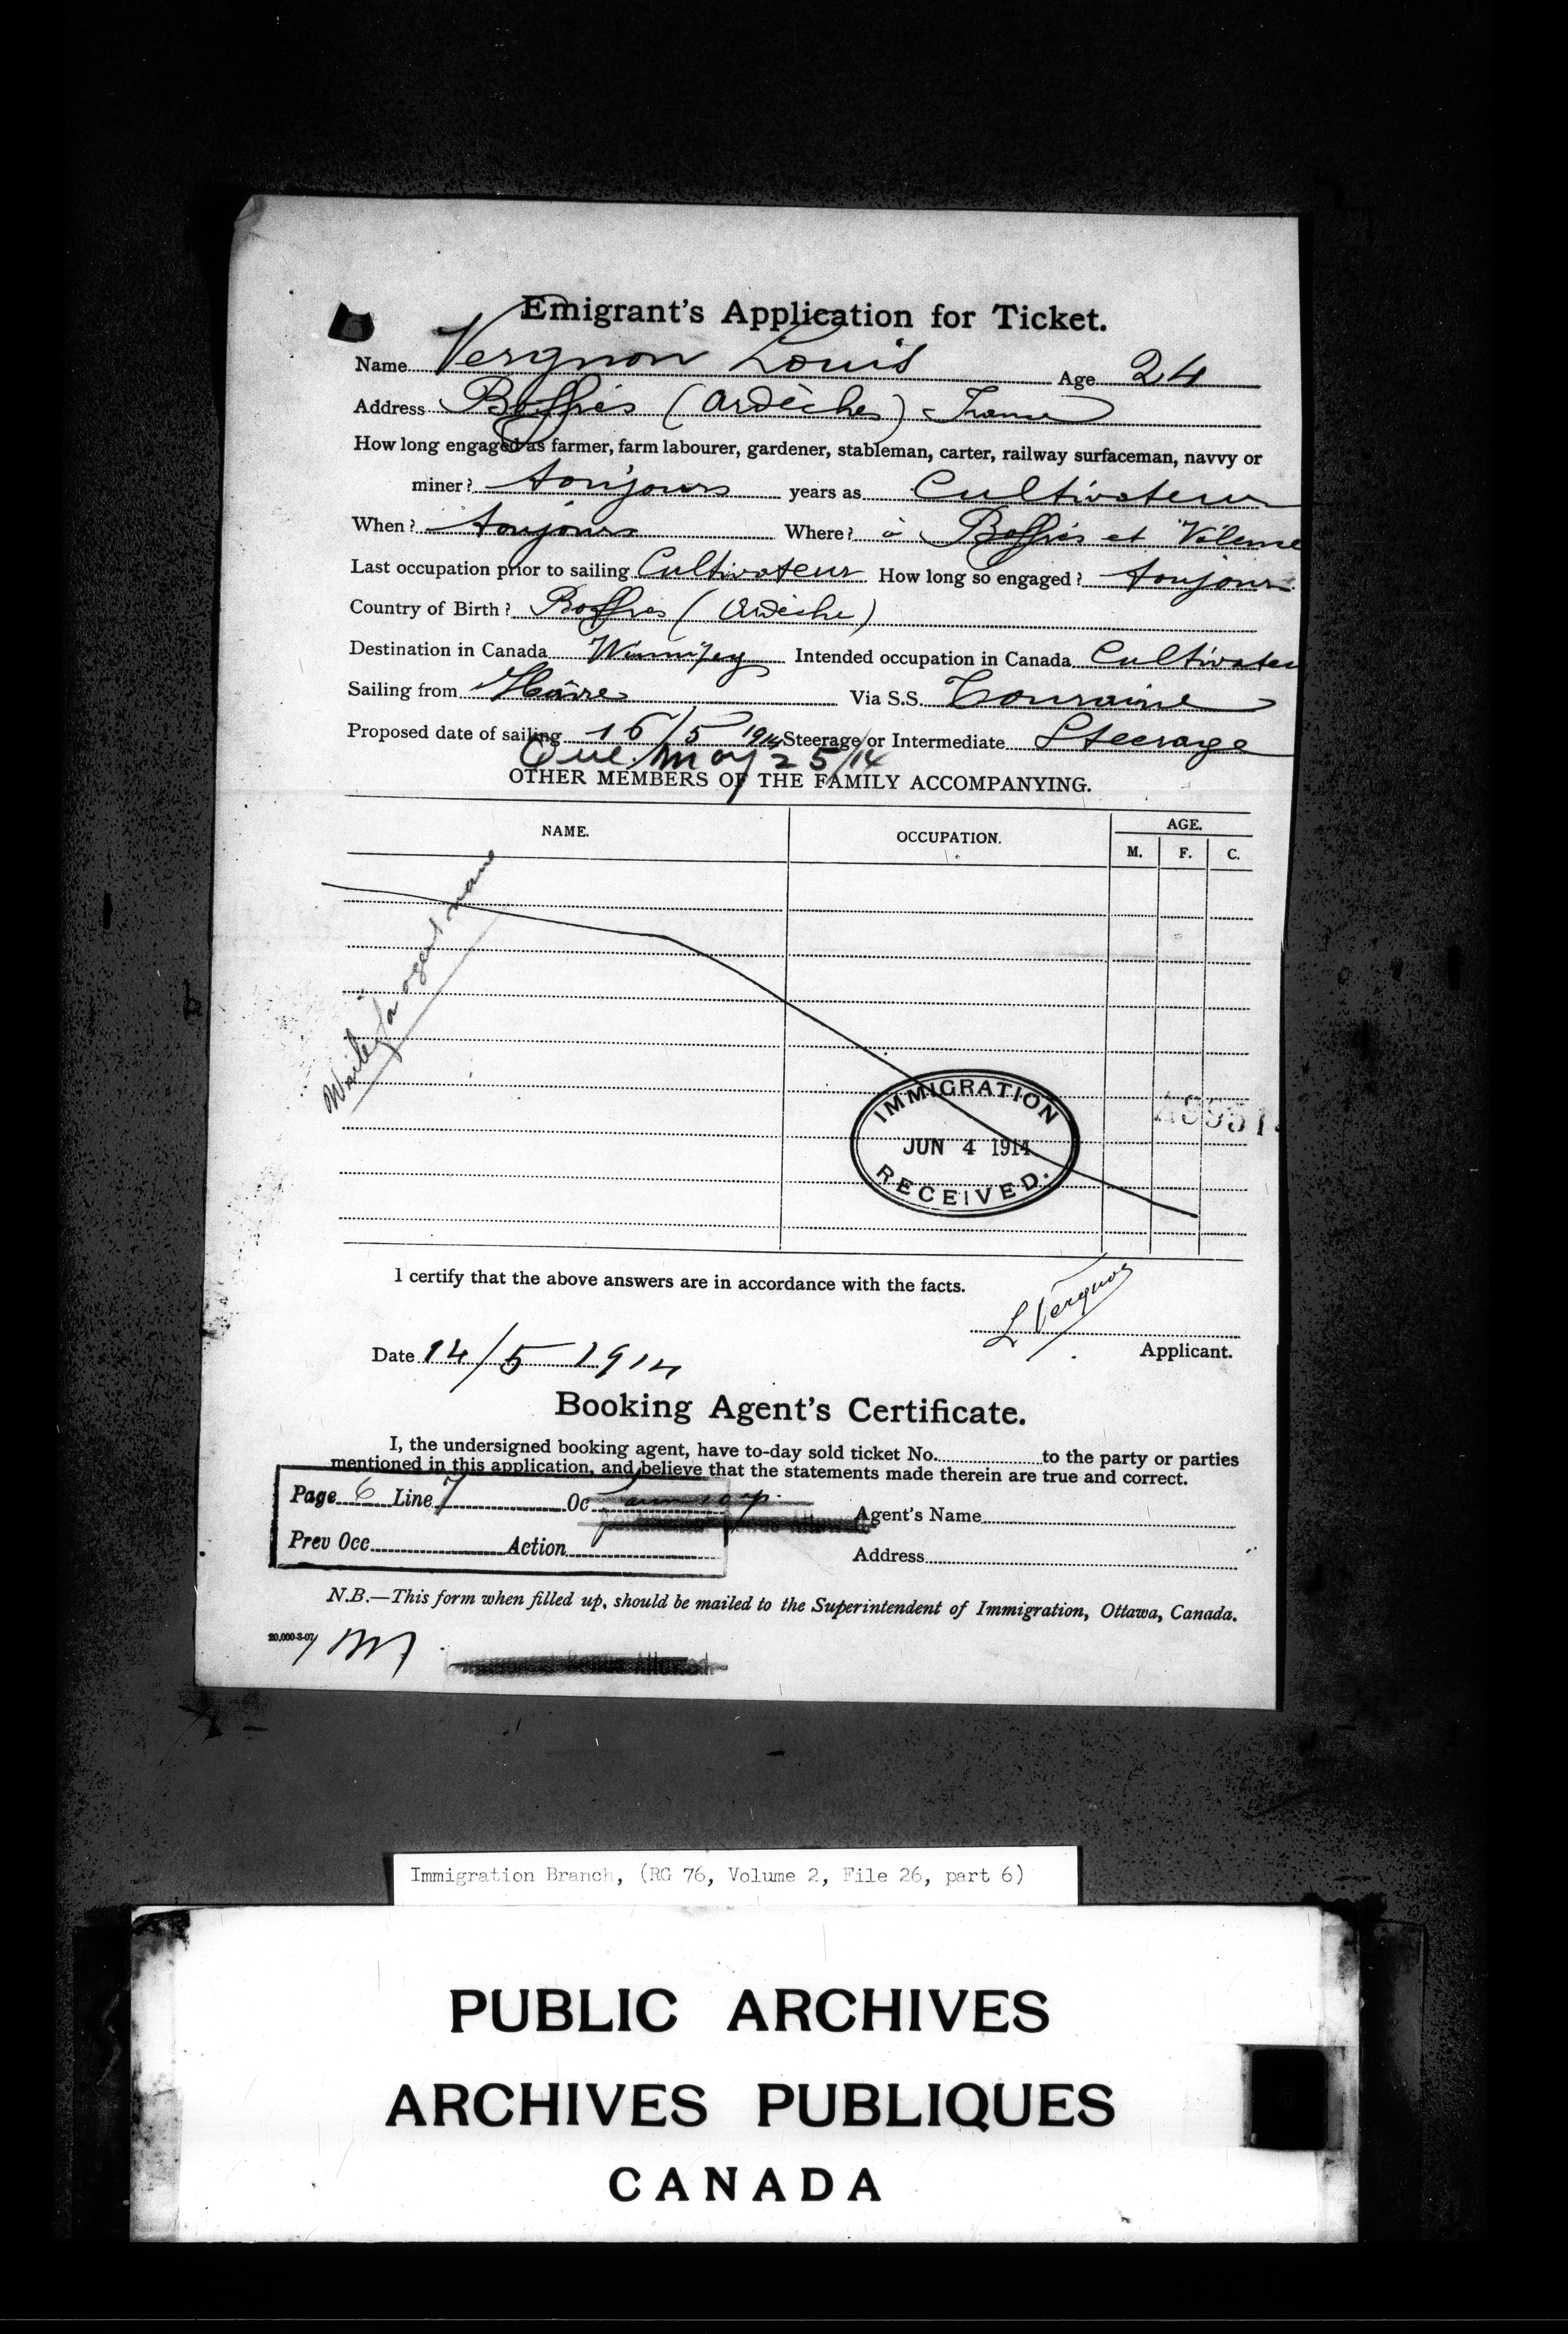 Emigrant's Application for Ticket.
Name Vergnon Louis Age 24
Address Boffres (Ardèches) France
How long engaged as farmer, farm labourer, gardener, stableman, carter, railway surfaceman, navvy or
miner? toujours years as Cultivateur
When? toujours Where? à Boffres et
Last occupation prior to sailing Cultivateur How long so engaged? toujours
Country of Birth? Boffres (Ardèche)
Destination in Canada Winnipeg Intended occupation in Canada Cultivateu
Sailing from Hâvre Via S.S. Touraine
Proposed date of sailing 16/5 1914 Steerage or Intermediate Steerage
Que May 25/14
OTHER MEMBERS OF THE FAMILY ACCOMPANYING.
NAME. OCCUPATION. AGE.
M. F. C.
Write for agent name
IMMIGRATION
JUN 4 1914
RECEIVED.
I certify that the above answers are in accordance with the facts.
L Vergnon
Date 14/5 1914 Applicant.
Booking Agent's Certificate.
I, the undersigned booking agent, have to-day sold ticket No. to the party or parties
mentioned in this application, and believe that the statements made therein are true and correct.
Page 6 Line 7 Oc
Agent's Name
Prev Occ Action
Address
N.B.—This form when filled up, should be mailed to the Superintendent of Immigration, Ottawa, Canada.
20,000-3-07
Immigration Branch, (RG 76, Volume 2, File 26, part 6)
PUBLIC ARCHIVES
ARCHIVES PUBLIQUES
CANADA